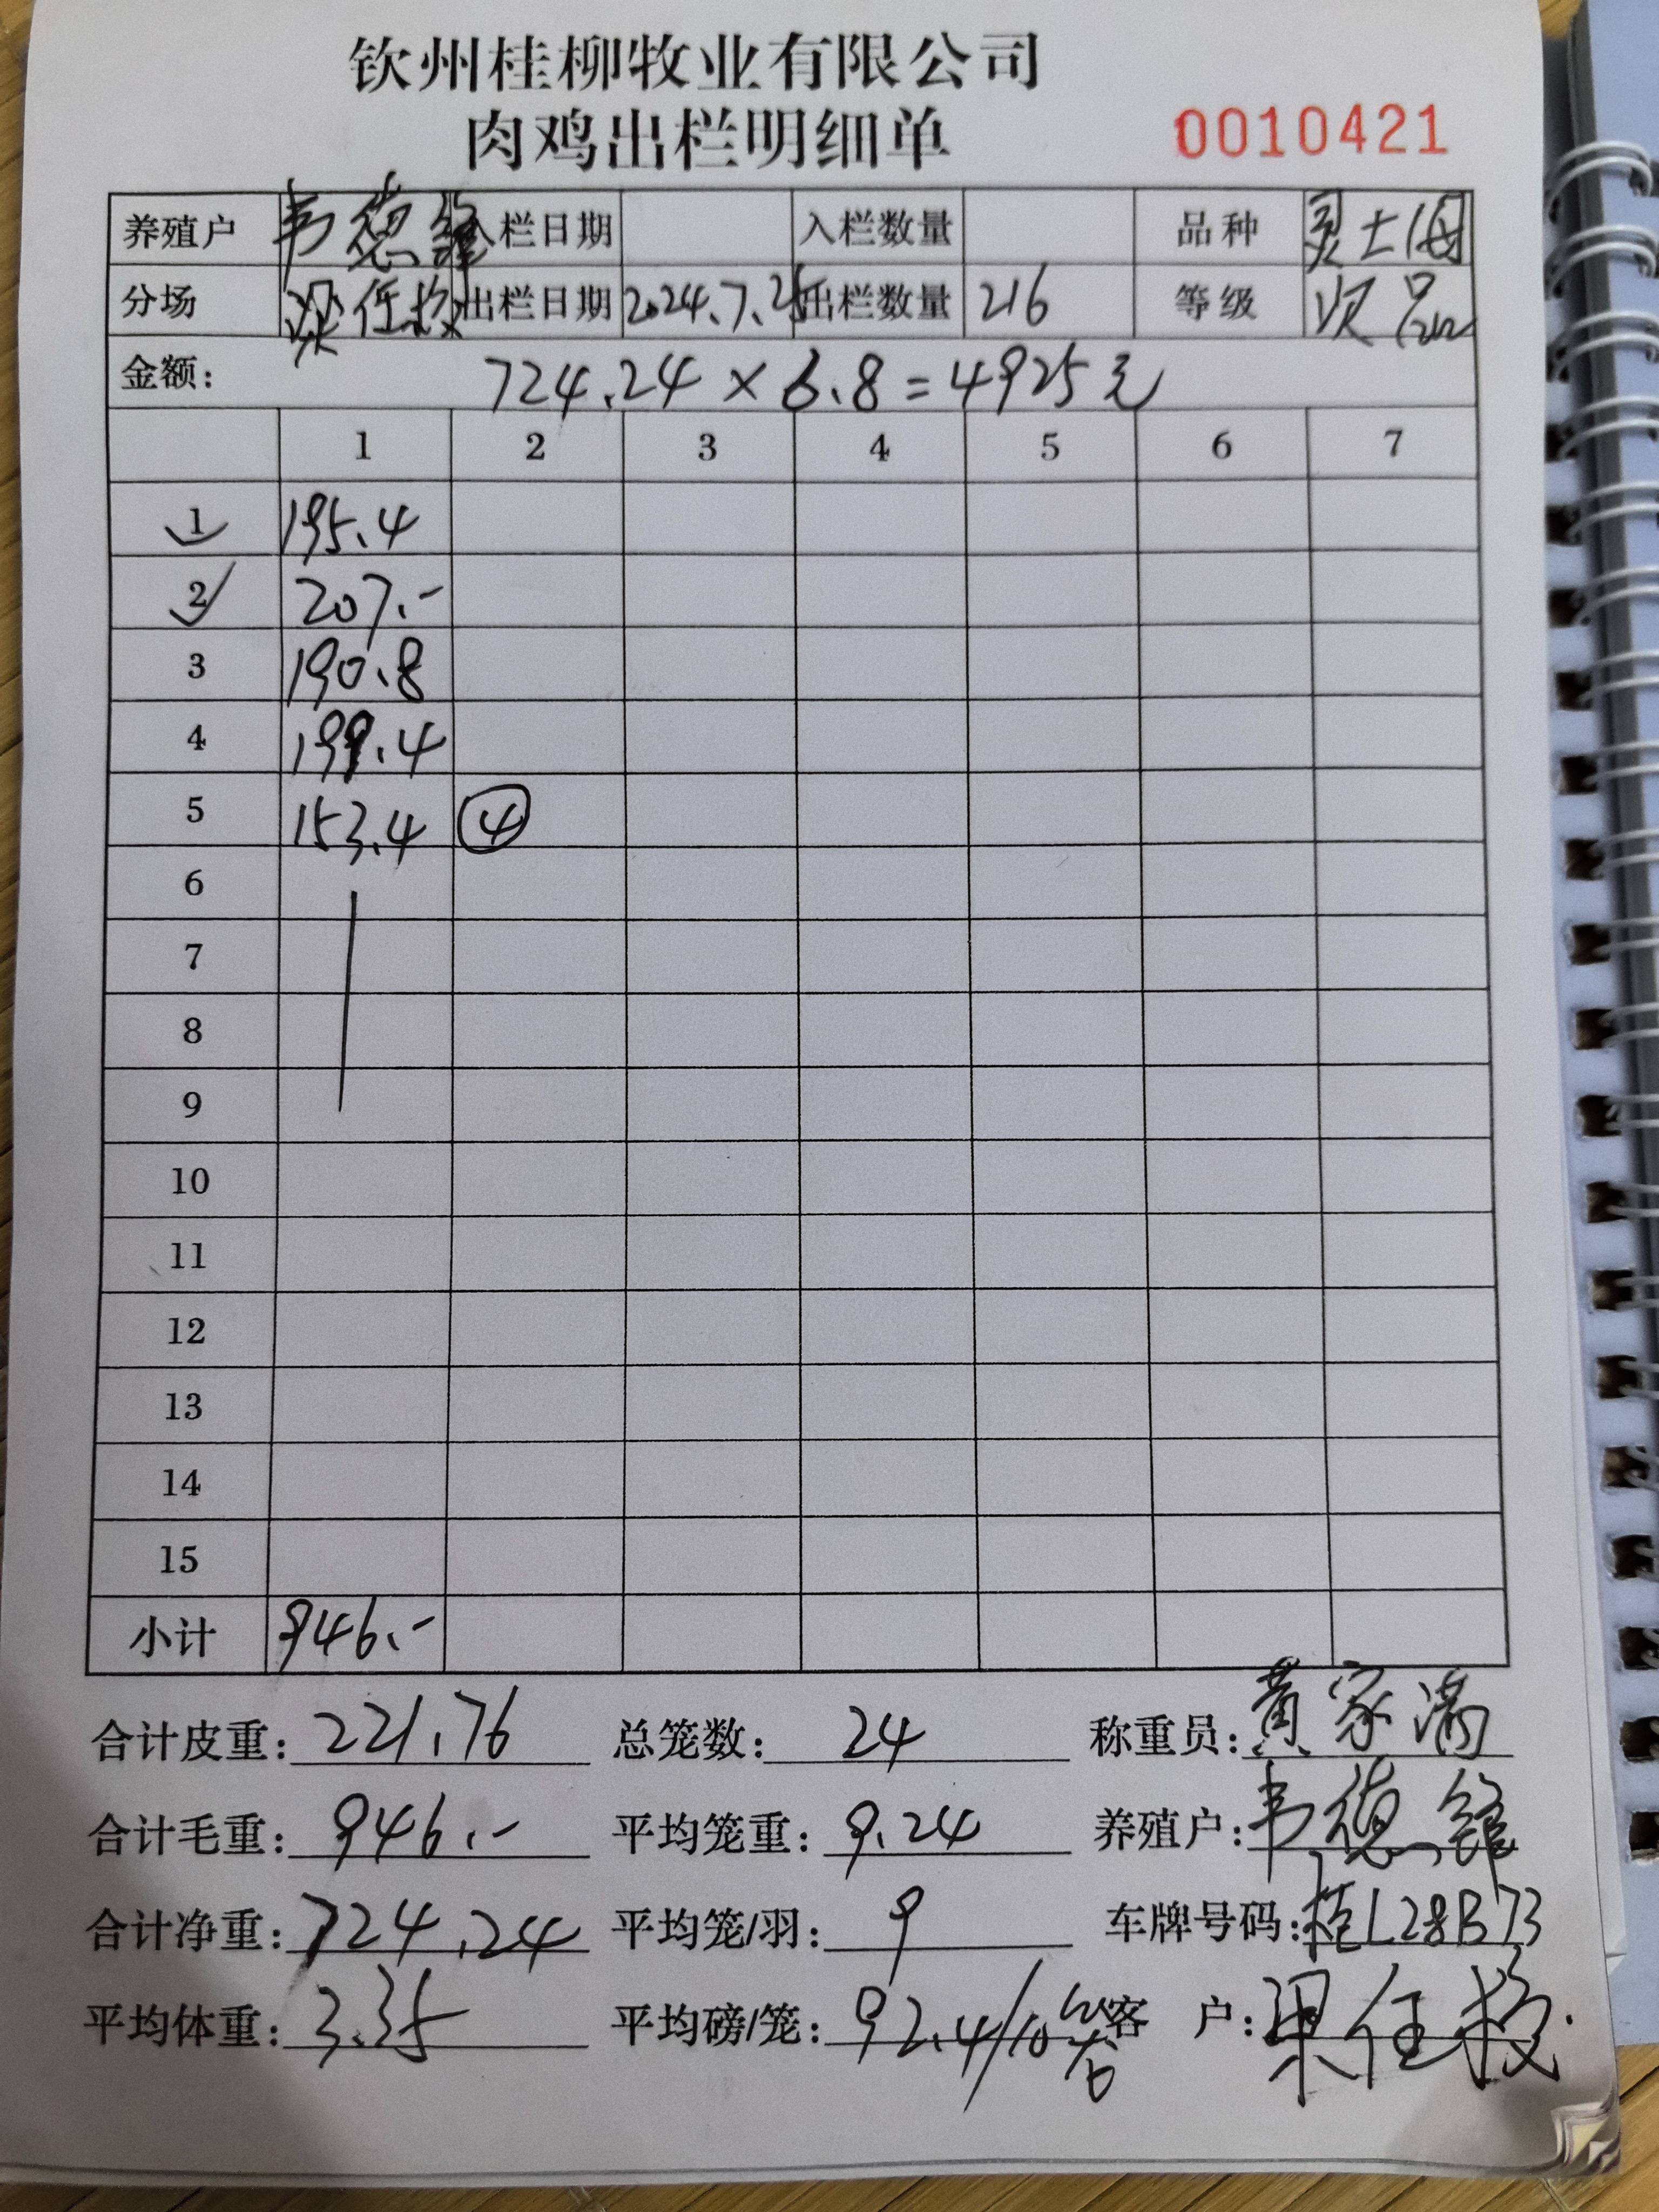 钦州桂柳牧业有限公司
肉鸡出栏明细单 0010421
养殖户 韦德 入栏日期 入栏数量 品种
分场 任 出栏日期 2024.7.25 出栏数量 216 等级 次品
金额: 724.24 × 6.8 = 4925元
1 2 3 4 5 6 7
1 195.4
2 207.-
3 190.8
4 199.4
5 153.4 ④
6
7
8
9
10
11
12
13
14
15
小计 946.-
合计皮重: 221.76 总笼数: 24 称重员: 黄家满
合计毛重: 946.- 平均笼重: 9.24 养殖户: 韦德
合计净重: 724.24 平均笼/羽: 9 车牌号码: 桂L28B73
平均体重: 3.35 平均磅/笼: 92.4/10 客 户: 梁任